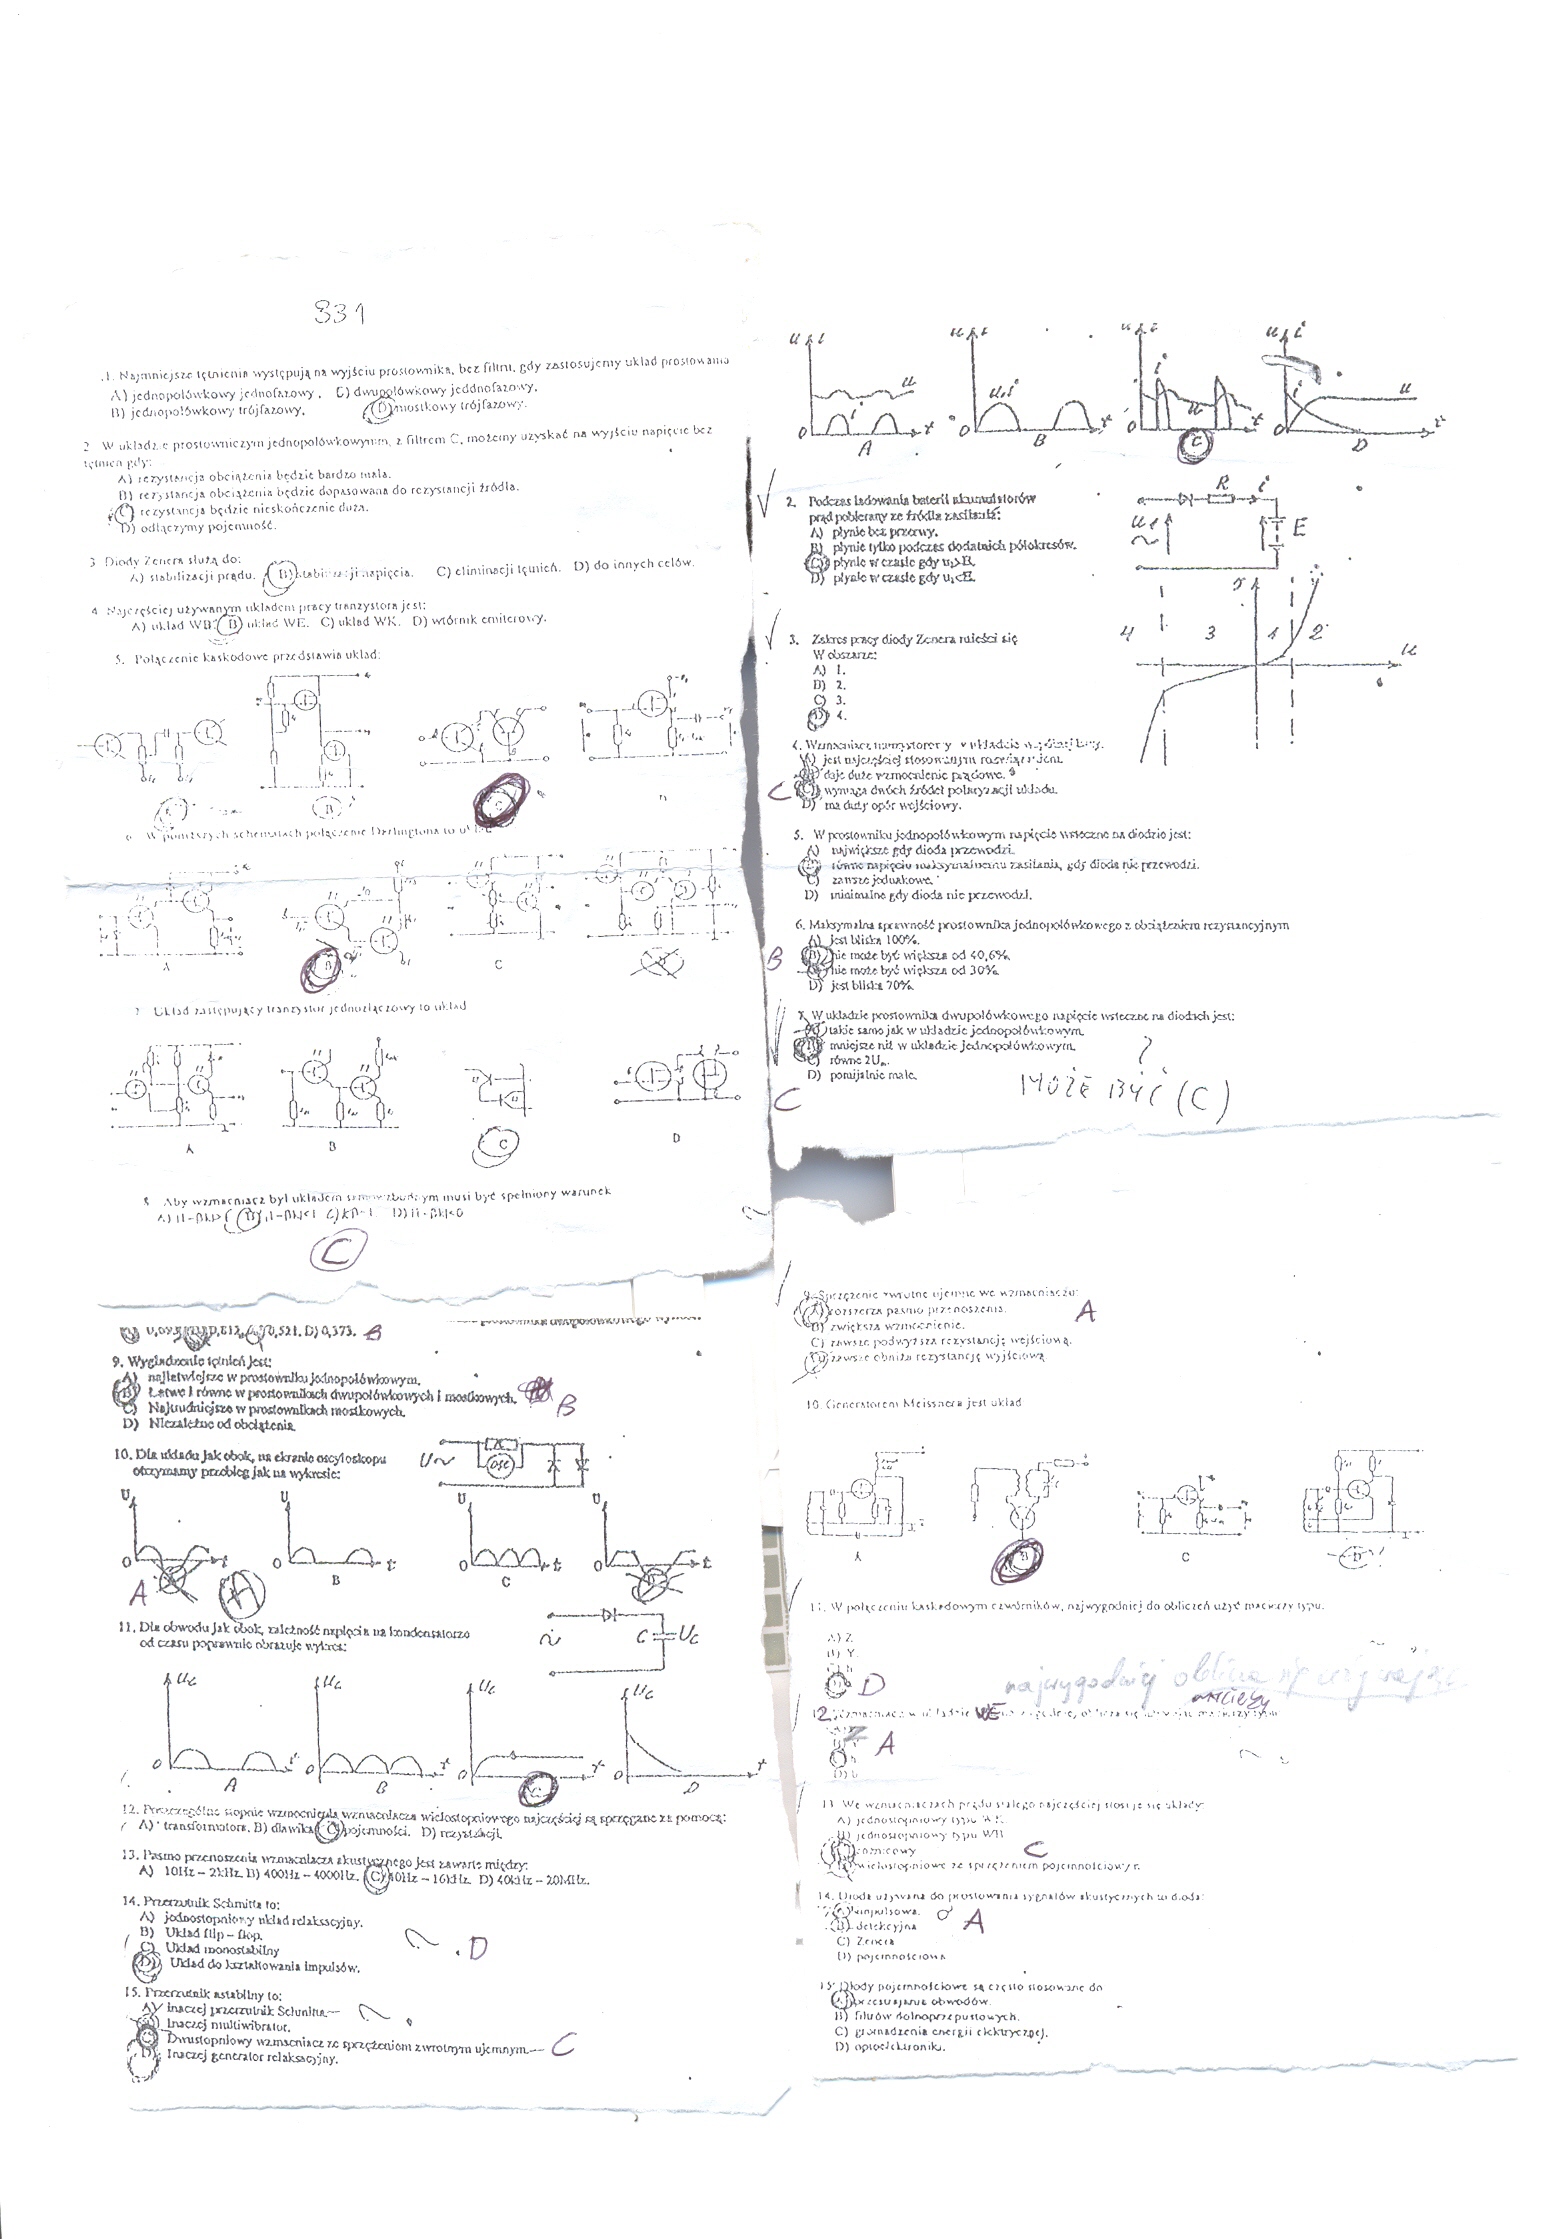 831
.1. Najmniejsze tętnienia występują na wyjściu prostownika, bez filtru, gdy zastosujemy układ prostowania
A) jednopołówkowy jednofazowy. C) dwupołówkowy jeddnofazowy.
B) jednopołówkowy trójfazowy. D) mostkowy trójfazowy.
2 W układzie prostowniczym jednopołówkowym, z filtrem C, możemy uzyskać na wyjściu napięcie bez
tętnień gdy:
A) rezystancja obciążenia będzie bardzo mała.
B) rezystancja obciążenia będzie dopasowana do rezystancji źródła.
C) rezystancja będzie nieskończenie duża.
D) odłączymy pojemność.
3 Diody Zenera służą do:
A) stabilizacji prądu. B) stabilizacji napięcia. C) eliminacji tętnień. D) do innych celów.
4 Najczęściej używanym układem pracy tranzystora jest:
A) układ WB. B) układ WE. C) układ WK. D) wtórnik emiterowy.
5. Połączenie kaskodowe przedstawia układ:
B C D
6 W poniższych schematach połączenie Darlingtona to
A B C
7 Układ zastępujący tranzystor jednozłączowy to układ
A B C D
8 Aby wzmacniacz był układem samowzbudnym musi być spełniony warunek
C
0,521. D) 0,373. B
9. Wygładzanie tętnień jest:
A) najłatwiejsze w prostowniku jednopołówkowym.
B) Łatwe i równe w prostownikach dwupołówkowych i mostkowych.
C) Najtrudniejsze w prostownikach mostkowych.
D) Niezależne od obciążenia.
B
10. Dla układu jak obok, na ekranie oscyloskopu
otrzymamy przebieg jak na wykresie:
U~ R OSC
U U U U
0 t 0 t 0 t 0 t
A A B C
11. Dla obwodu jak obok, zależność napięcia na kondensatorze
od czasu poprawnie obrazuje wykres:
~ C Uc
Uc Uc Uc Uc
0 t 0 t 0 t 0 t
A B C D
12. Poszczególne stopnie wzmocnienia wzmacniacza wielostopniowego najczęściej są sprzęgane za pomocą:
A) transformatora. B) dławika. C) pojemności. D) rezystancji.
13. Pasmo przenoszenia wzmacniacza akustycznego jest zawarte między:
A) 10Hz – 2kHz. B) 400Hz – 4000Hz. C) 40Hz – 16kHz. D) 40kHz – 20MHz.
14. Przerzutnik Schmitta to:
A) jednostopniowy układ relaksacyjny.
B) Układ flip – flop.
C) Układ monostabilny
D) Układ do kształtowania impulsów.
D
15. Przerzutnik astabilny to:
A) inaczej przerzutnik Schmitta.
B) Inaczej multiwibrator.
C) Dwustopniowy wzmacniacz ze sprzężeniem zwrotnym ujemnym. C
D) Inaczej generator relaksacyjny.
u i u i u i u i
u i u,i i u i u
0 t 0 t 0 t 0 t
A B C D
2. Podczas ładowania baterii akumulatorów
prąd pobierany ze źródła zasilania:
A) płynie bez przerwy.
B) płynie tylko podczas dodatnich półokresów.
C) płynie w czasie gdy u₁>E.
D) płynie w czasie gdy u₁<E.
R i
u₁ ~ E
3. Zakres pracy diody Zenera mieści się
W obszarze:
A) 1.
B) 2.
C) 3.
D) 4.
4 3 1 2
4. Wzmacniacz tranzystorowy w układzie wspólnej bazy.
A) jest najczęściej stosowanym rozwiązaniem.
B) daje duże wzmocnienie prądowe.
C) wymaga dwóch źródeł polaryzacji układu.
D) ma duży opór wejściowy.
C
5. W prostowniku jednopołówkowym napięcie wsteczne na diodzie jest:
A) największe gdy dioda przewodzi.
B) równe napięciu maksymalnemu zasilania, gdy dioda nie przewodzi.
C) zawsze jednakowe.
D) minimalne gdy dioda nie przewodzi.
6. Maksymalna sprawność prostownika jednopołówkowego z obciążeniem rezystancyjnym
A) jest bliska 100%.
B) nie może być większa od 40,6%.
C) nie może być większa od 30%.
D) jest bliska 70%.
B
7. W układzie prostownika dwupołówkowego napięcie wsteczne na diodach jest:
A) takie samo jak w układzie jednopołówkowym.
B) mniejsze niż w układzie jednopołówkowym.
C) równe 2Uₘ.
D) pomijalnie małe.
C
?
MOŻE BYĆ (C)
9. Sprzężenie zwrotne ujemne we wzmacniaczu:
A) rozszerza pasmo przenoszenia.
B) zwiększa wzmocnienie.
C) zawsze podwyższa rezystancję wejściową.
D) zawsze obniża rezystancję wyjściową
A
10. Generatorem Meissnera jest układ
A B C D
11. W połączeniu kaskadowym czwórników, najwygodniej do obliczeń użyć macierzy typu.
A) Z
B) Y
D
najwygodniej oblicza się
macierzy
12. Wzmacniacz w układzie WE
A
13 We wzmacniaczach prądu stałego najczęściej stosuje się układy:
A) jednostopniowy typu WE
B) jednostopniowy typu WB
C) różnicowy
D) wielostopniowe ze sprzężeniem pojemnościowym.
C
14. Dioda używana do prostowania sygnałów akustycznych to dioda:
A) impulsowa.
B) detekcyjna
C) Zenera
D) pojemnościowa
A
15 Diody pojemnościowe są często stosowane do
A) przestrajania obwodów.
B) filtrów dolnoprzepustowych.
C) gromadzenia energii elektrycznej.
D) optoelektroniki.